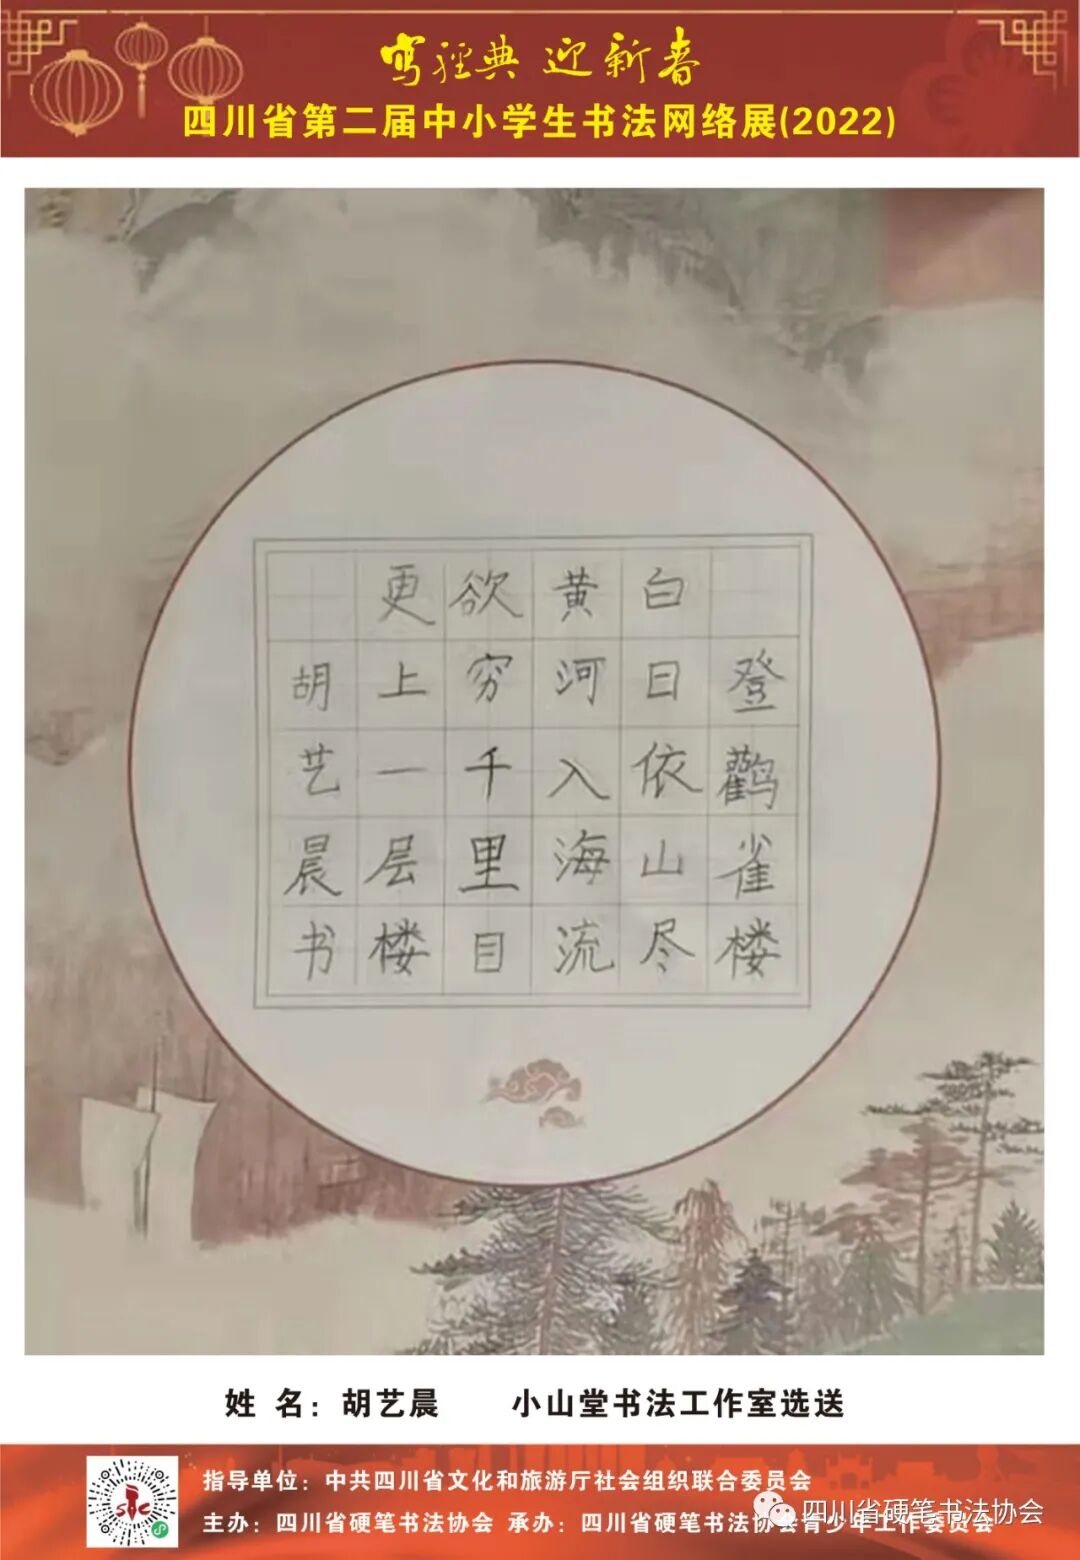 写经典 迎新春
四川省第二届中小学生书法网络展(2022)
登鹳雀楼
白日依山尽
黄河入海流
欲穷千里目
更上一层楼
胡艺晨书
姓 名：胡艺晨 小山堂书法工作室选送
指导单位：中共四川省文化和旅游厅社会组织联合委员会
主办：四川省硬笔书法协会 承办：四川省硬笔书法协会青少年工作委员会
四川省硬笔书法协会